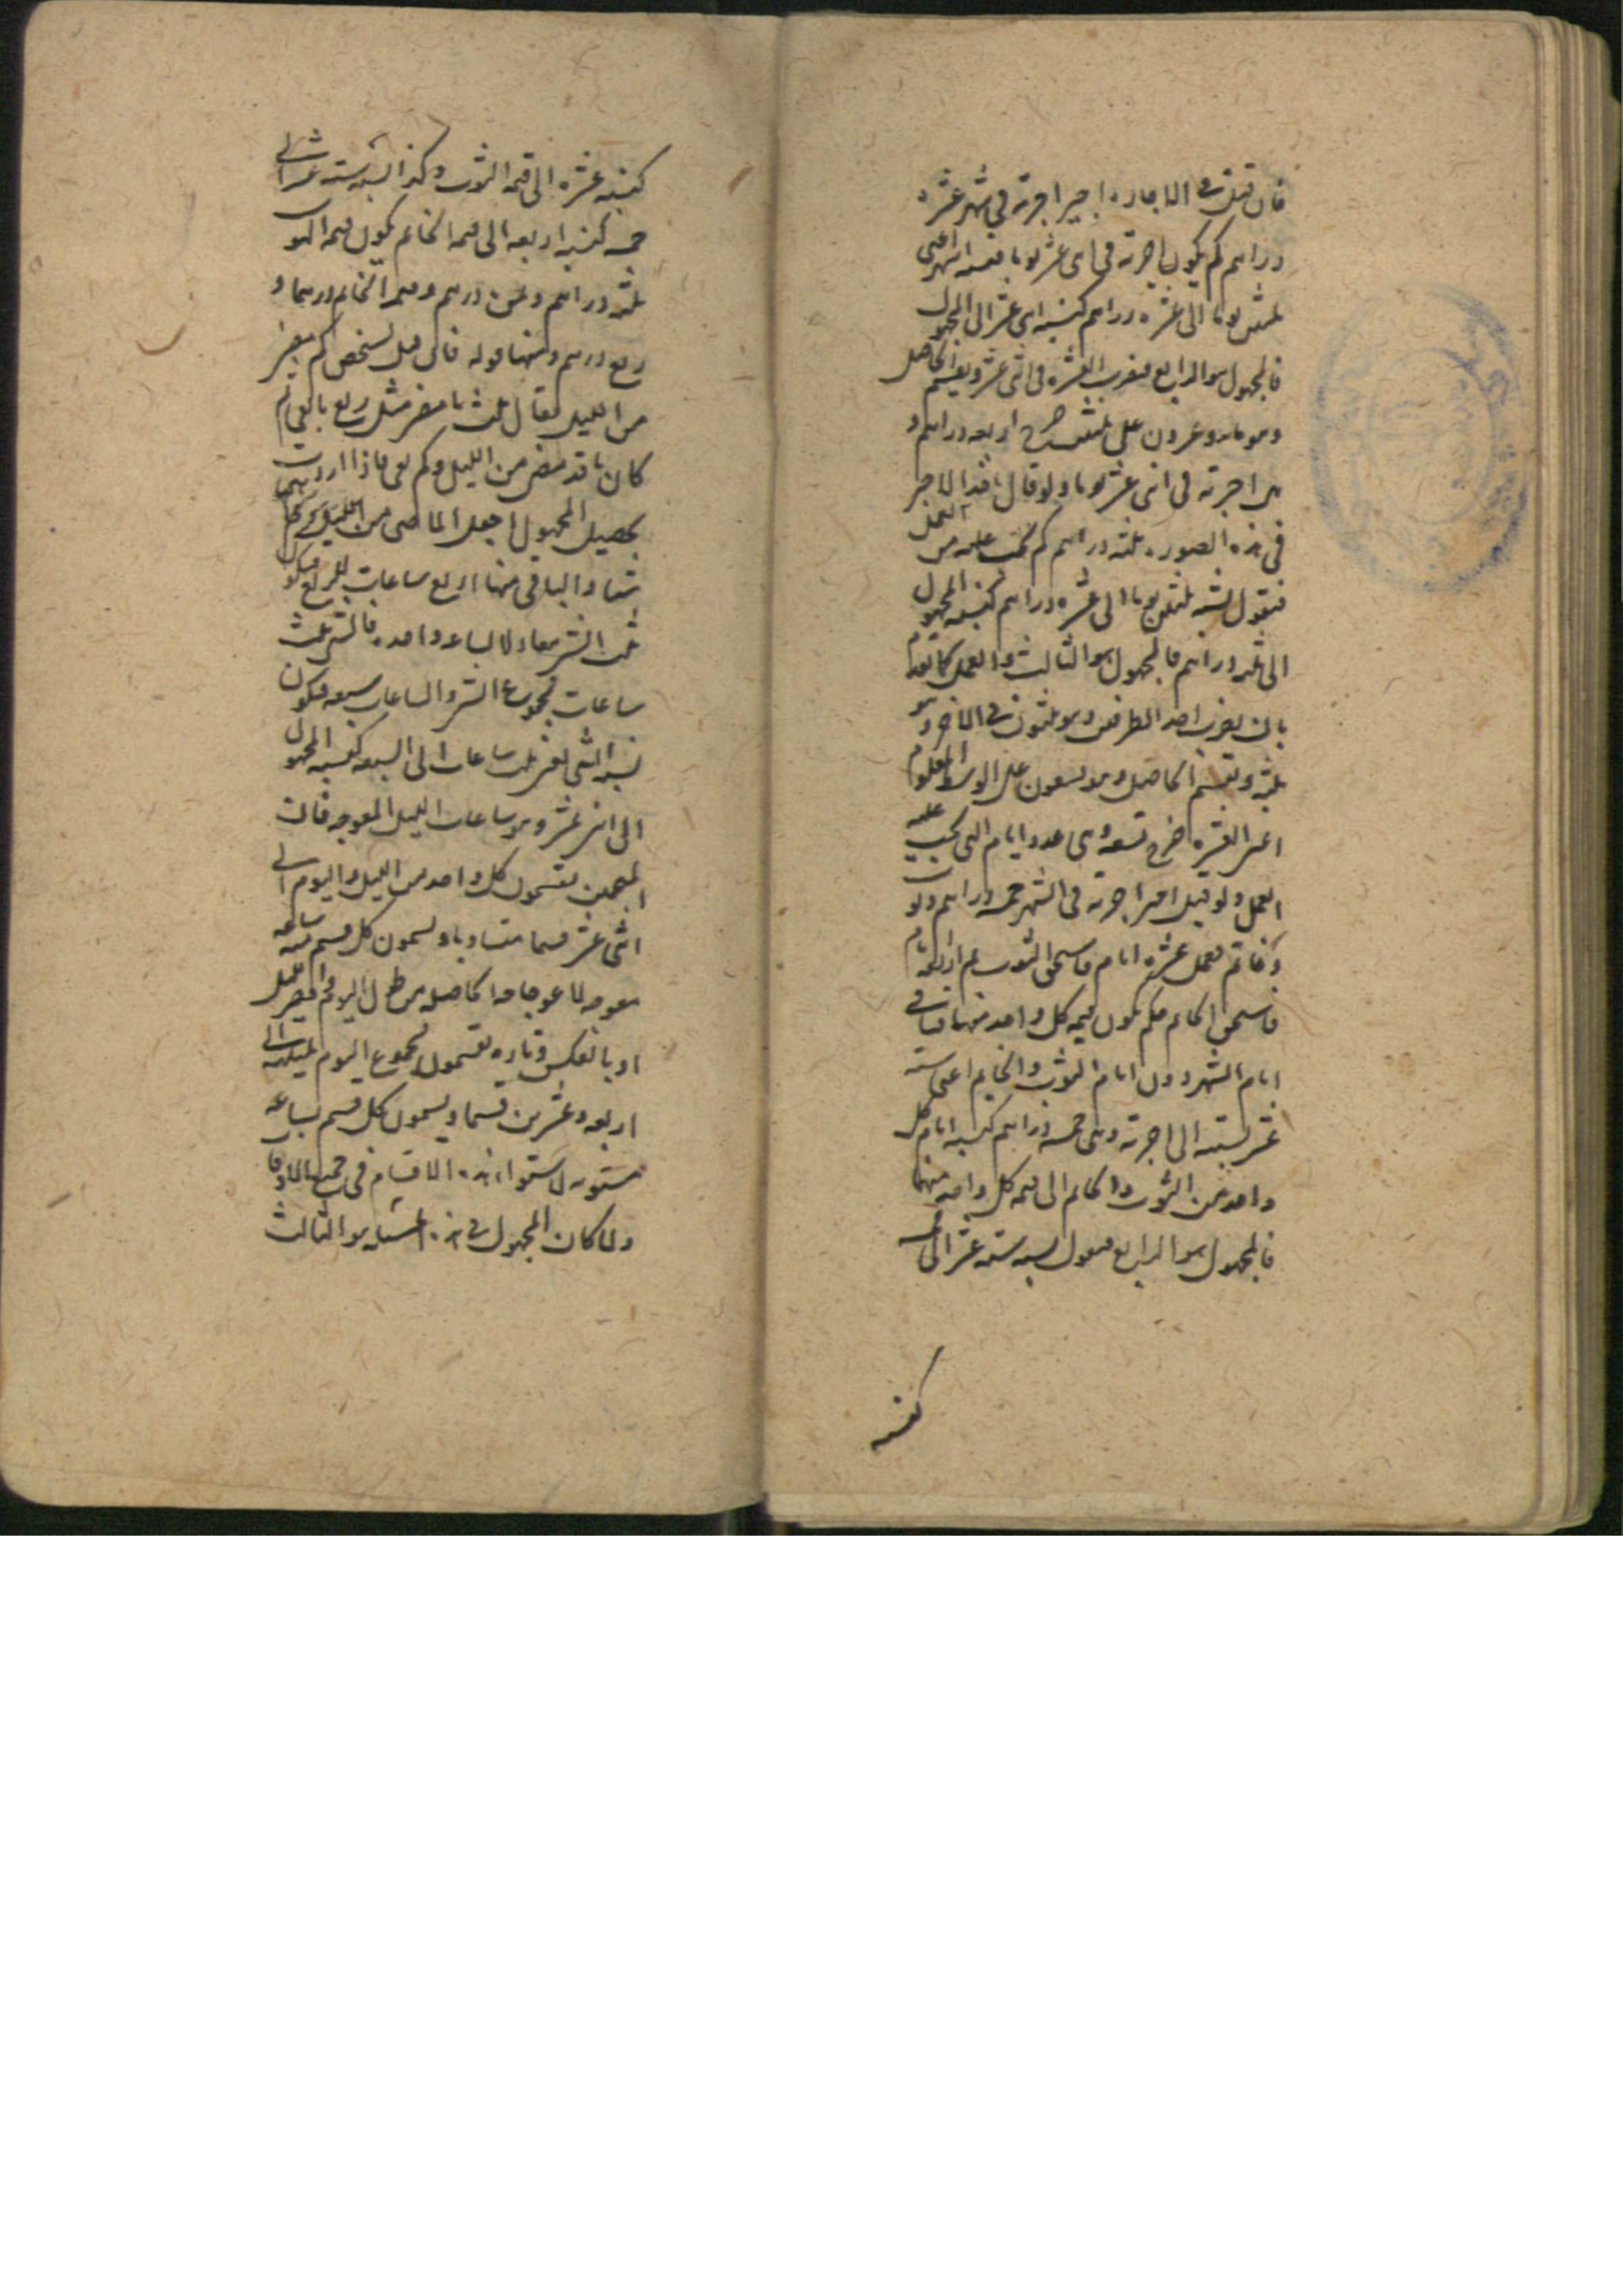 فان قيل فى الاجاره اجير اجرته فى شهر عشرة
دراهم كم يكون اجرته فى اثنى عشر يوما فنسبه الشهر اعنى
ثلثين يوما الى عشره دراهم كنسبه اثنى عشر الى المجهول
فالمجهول هو الرابع فنضرب العشره فى اثنى عشر ونقسم الحاصل
وهو مائه وعشرون على ثلثين خرج اربعه دراهم و
هى اجرته فى اثنى عشر يوما ولو قال اخذ الاجير
فى هذه الصوره ثلثه دراهم كم يجب عليه من العمل
فنقول نسبه ثلثين يوما الى عشره دراهم كنسبه المجهول
الى ثلثه دراهم فالمجهول هو الثالث والعمل كما تقدم
بان يضرب احد الطرفين وهو ثلثون فى الاخر وهو
ثلثه ونقسم الحاصل وهو تسعون على الوسط المعلوم
اعنى العشره خرج تسعه وهى عدد ايام التى يجب عليه
العمل ولو قيل اجير اجرته فى الشهر خمسه دراهم وثوب
وخاتم فعمل عشره ايام فاستحق الثوب ثم اربعه ايام
فاستحق الخاتم فكم يكون قيمه كل واحد منهما فباقى
ايام الشهر دون ايام الثوب والخاتم اعنى سته
عشر نسبته الى اجرته وهى خمسه دراهم كنسبه ايام كل
واحد من الثوب والخاتم الى قيمه كل واحد منهما
فالمجهول هو الرابع فنقول نسبه سته عشر الى خمسه
كنسبه
كنسبه عشره الى قيمه الثوب وكذا نسبه سته عشر الى
خمسه كنسبه اربعه الى قيمه الخاتم يكون قيمه الثوب
ثلثه دراهم وثمن درهم وقيمه الخاتم درهما و
ربع درهم ومنها قوله فان قيل لشخص كم مضى
من الليل فقال ثلث ما مضى مثل ربع ما بقى كم
كان ما قد مضى من الليل وكم بقى فاذا اردت
تحصيل المجهول اجعل الماضى من الليل
شيئا والباقى منها اربع ساعات للربع فيكون
ثلث الشئ معادلا لساعه واحده فالشئ ثلث
ساعات مجموع الشئ والساعات سبعه فيكون
نسبه الشئ اعنى ثلث ساعات الى السبعه كنسبه المجهول
الى اثنى عشر وهو ساعات الليل المعوجه فان
المنجمين يقسمون كل واحد من الليل واليوم الى
اثنى عشر قسما متساويا ويسمون كل قسم منه ساعه
معوجه لاعوجاجها الحاصله من طول اليوم وقصر الليل
او بالعكس وتاره يقسمون مجموع اليوم بليلته الى
اربعه وعشرين قسما ويسمون كل قسم بساعه
مستويه لاستواء هذه الاقسام فى جميع الاوقات
ولما كان المجهول فى هذه المسئله هو الثالث